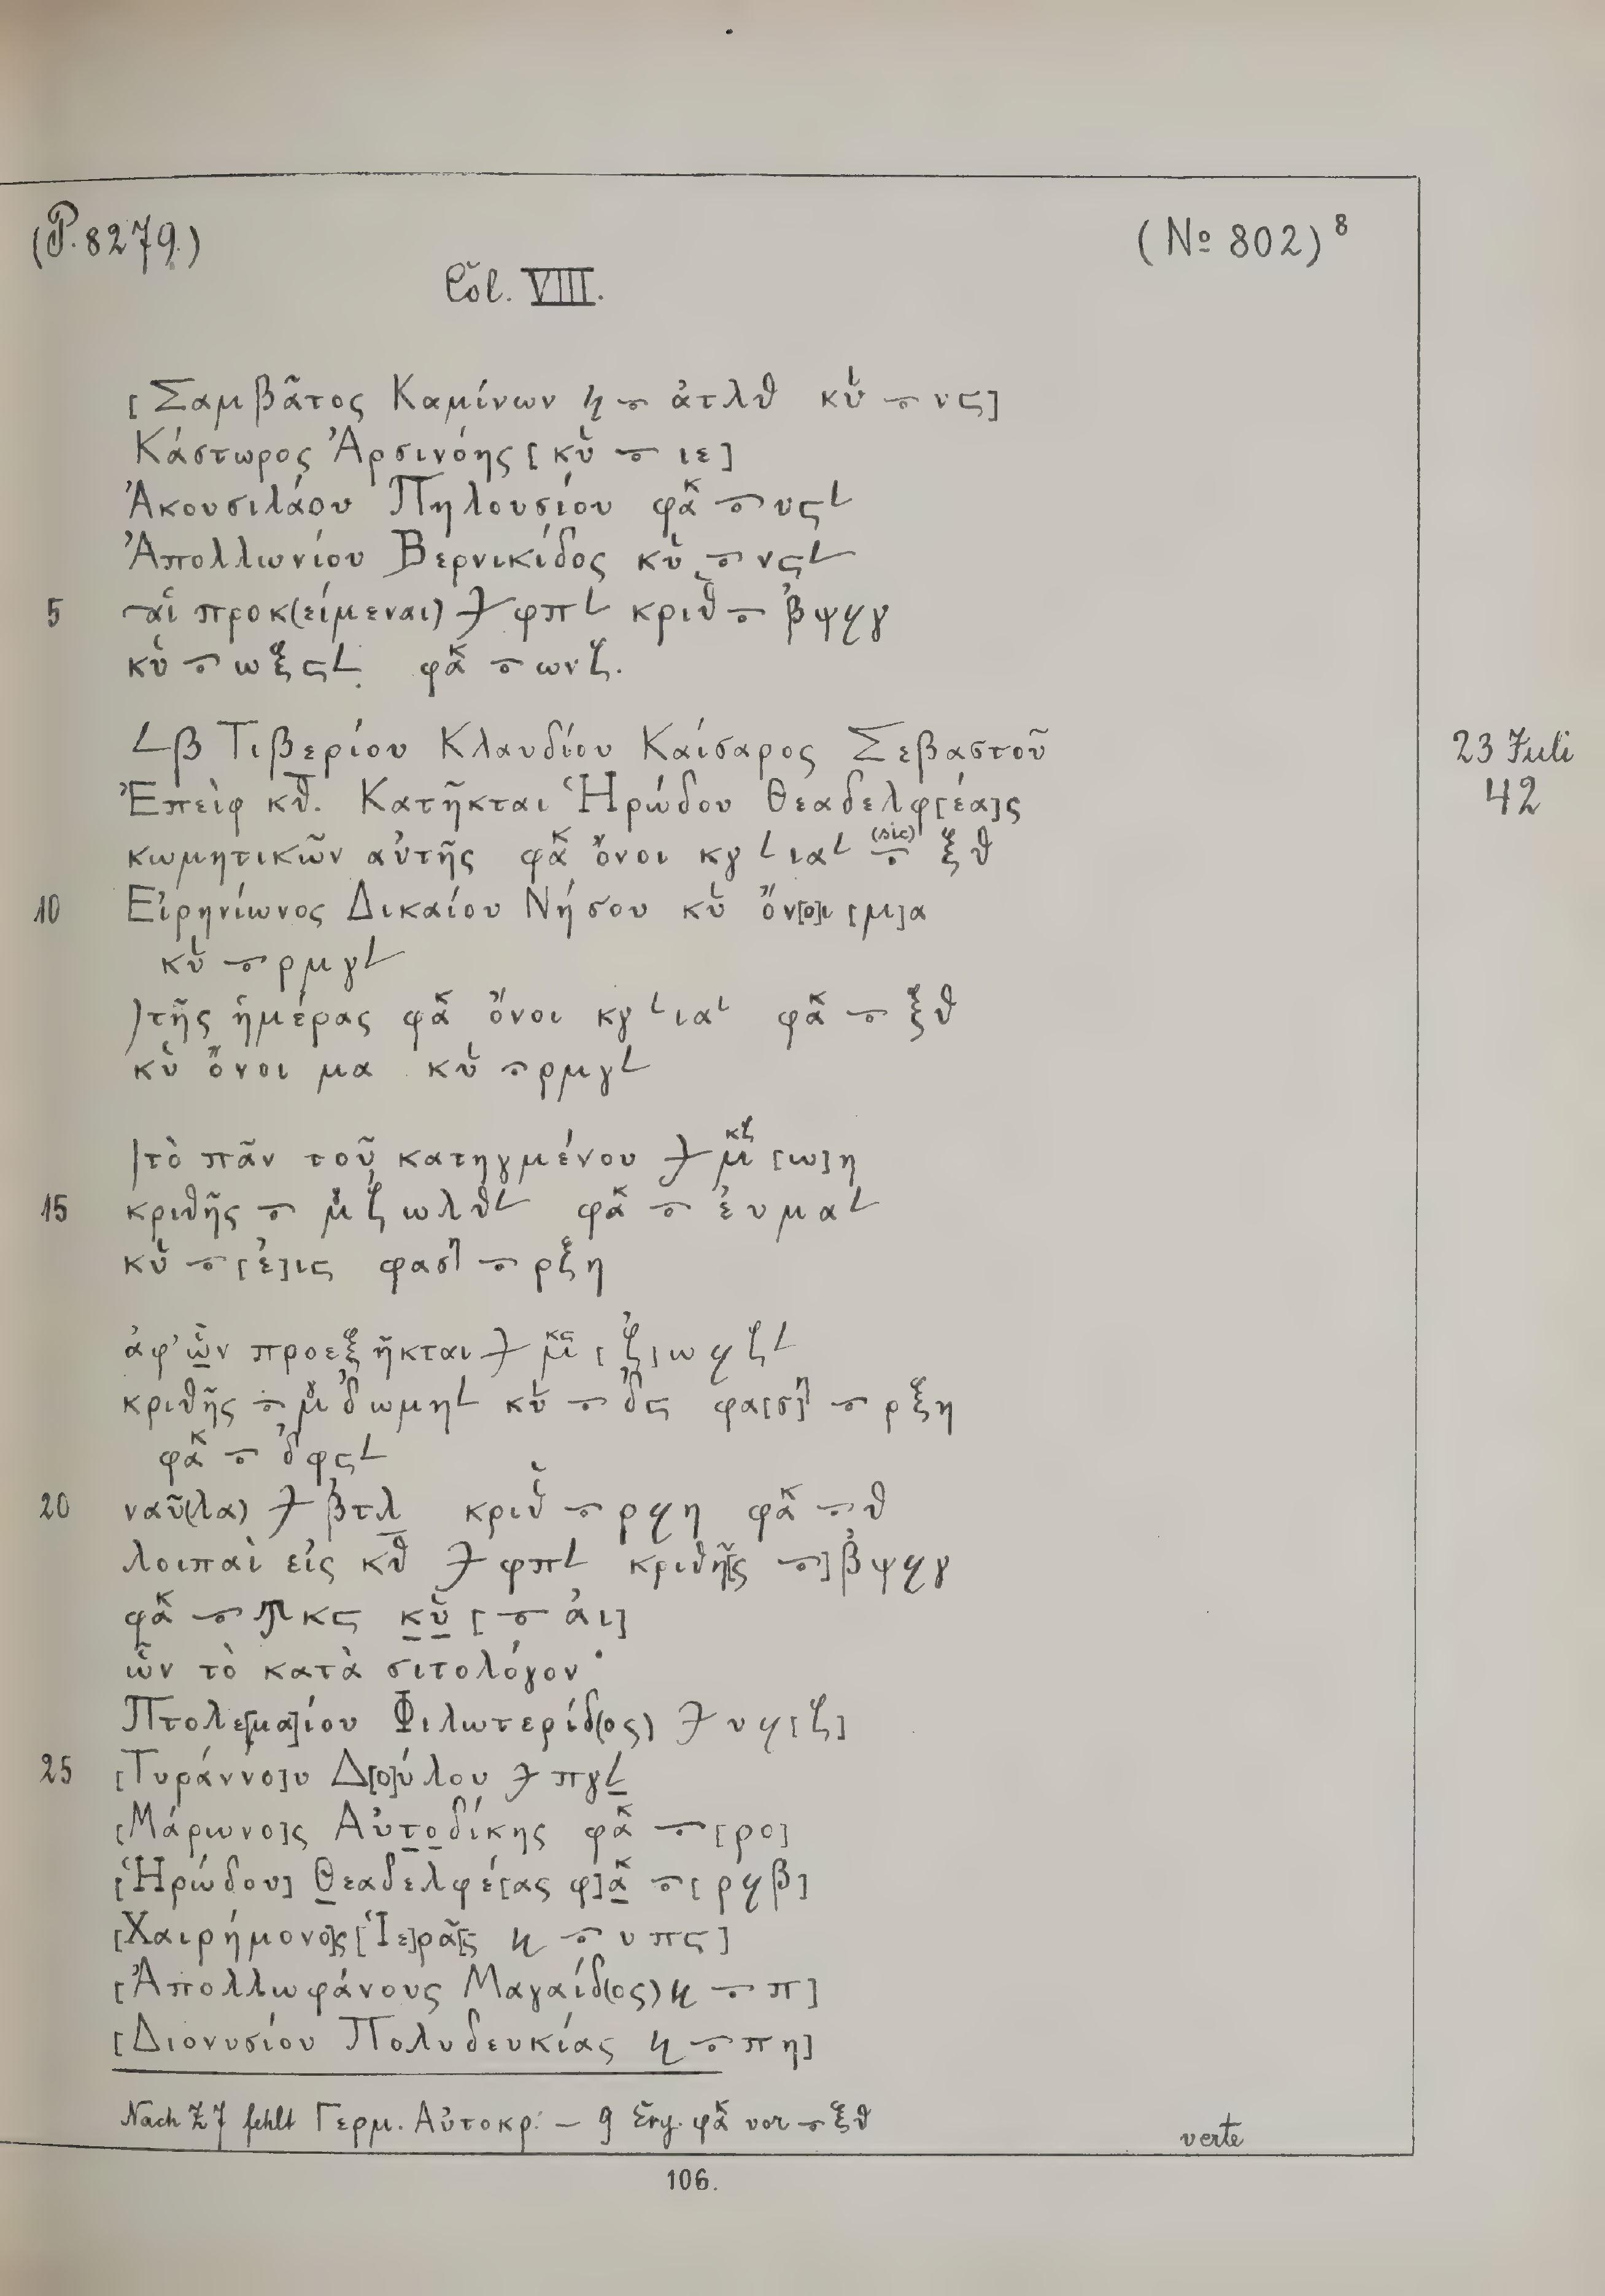 (P. 8279.)
(No 802) 8
Col. VIII.
[Σαμβᾶτος Καμίνων ϗ ⲻ ἀτλθ κυ̉ ⲻ νϛ]
Κάστωρος Ἀρσινόης [κυ̉ ⲻ ιε]
Ἀκουσιλάου Πηλουσίου φακ ⲻ υϛ𐅵
Ἀπολλωνίου Βερνικίδος κυ̉ ⲻ νϛ𐅵
5 αἱ προκ(είμεναι) φπ𐅵 κριθ ⲻ βψϥγ
κυ̉ ⲻ ωξϛ𐅵 φακ ⲻ ωνζ.
𐅹β Τιβερίου Κλαυδίου Καίσαρος Σεβαστοῦ
23 Juli
42
Ἐπεὶφ κθ. Κατῆκται Ἡρώδου Θεαδελφ[έα]ς
κωμητικῶν αὐτῆς φακ ὄνοι κγ𐅵 ια𐅵 (sic) ⲻ ξθ
10 Εἰρηνίωνος Δικαίου Νήσου κυ̉ ὄν[ο]ι [μ]α
κυ̉ ⲻ ρμγ𐅵
)τῆς ἡμέρας φακ ὄνοι κγ𐅵 ια𐅵 φακ ⲻ ξθ
κυ̉ ὄνοι μα κυ̉ ⲻ ρμγ𐅵
)τὸ πᾶν τοῦ κατηγμένου μκζ [ω]η
15 κριθῆς ⲻ μ ζωλθ𐅵 φακ ⲻ ἐυμα𐅵
κυ̉ ⲻ [ἐ]ιϛ φαση ⲻ ρξη
ἀφ' ὧν προεξῆκται μκϛ [ζ]ωϥζ𐅵
κριθῆς ⲻ μ δωμη𐅵 κυ̉ ⲻ δϛ φα[σ]η ⲻ ρξη
φακ ⲻ δφϛ𐅵
20 ναῦ(λα) βτλ κριθ ⲻ ρϥη φακ ⲻ θ
λοιπαὶ εἰς κθ φπ𐅵 κριθῆ[ς ⲻ] βψϥγ
φακ ⲻ ϡκϛ κυ̉ [ⲻ ἀι]
ὧν τὸ κατὰ σιτολόγον·
Πτολε[μα]ίου Φιλωτερίδ(ος) υϥ[ζ]
25 [Τυράννο]υ Δ[ο]ύλου πγ𐅵
[Μάρωνο]ς Αὐτοδίκης φακ ⲻ [ρο]
[Ἡρώδου] Θεαδελφέ[ας φ]ακ ⲻ [ρϥβ]
[Χαιρήμονο]ς [Ἱε]ρᾶ[ς ϗ ⲻ υπϛ]
[Ἀπολλωφάνους Μαγαίδ(ος) ϗ ⲻ π]
[Διονυσίου Πολυδευκίας ϗ ⲻ πη]
Nach Z 7 fehlt Γερμ. Αὐτοκρ. – 9 Erg. φακ vor ⲻ ξθ
verte
106.